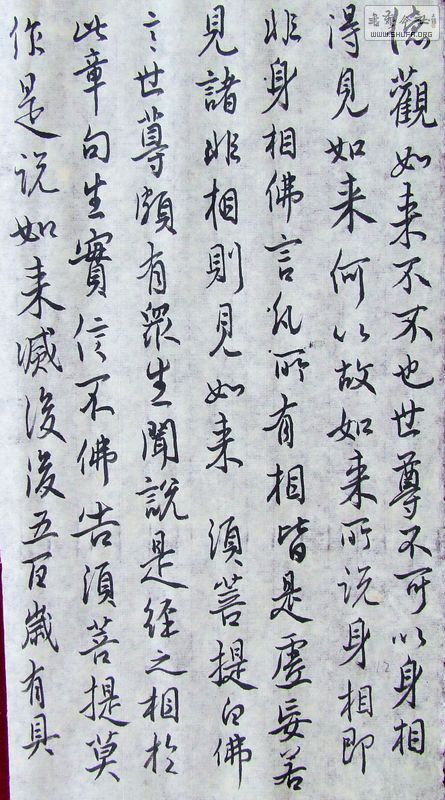 應觀如来不不也世尊不可以身相
得見如来何以故如来所说身相即
非身相佛言凡所有相皆是虚妄若
見諸非相則見如来 须菩提白佛
言世尊頗有眾生聞說是經之相於
此章句生實信不佛告须菩提莫
作是说如来滅後後五百歲有具
WWW.SHUFA.ORG